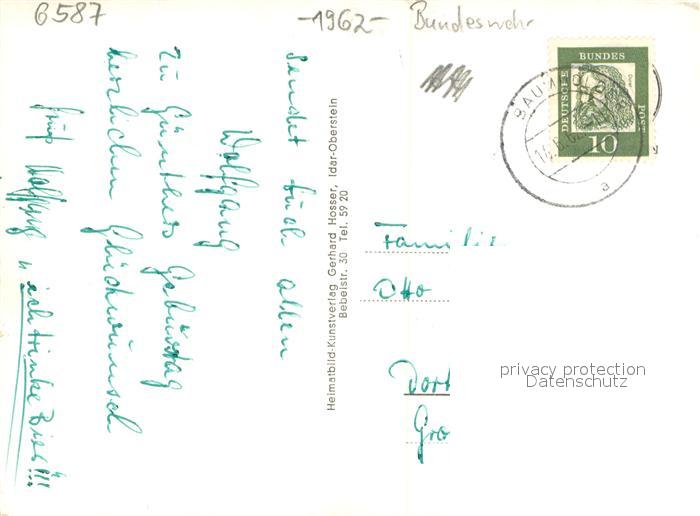 6587
-1962-
Bundeswehr
sendet Euch allen
Wolfgang
Zu Günthers Geburtstag
herzlichen Glückwunsch
Gruß Wolfgang u ich trinke Bier!!!
Heimatbild-Kunstverlag Gerhard Hosser, Idar-Oberstein
Bebelstr. 30 Tel. 59 20
DEUTSCHE
BUNDES
POST
10
a
Familie
Otto
Dort
Gro
privacy protection
Datenschutz